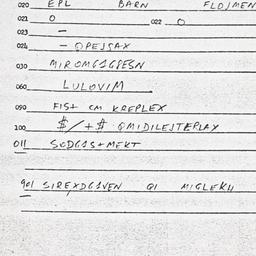 020 EPL BARN FLOJMEN
021 O 022 O
023 —
024 — OPEJSAX
030 MIROMG1G8ESN
060 LULOVIM
090 FIST CM KREPLEX
100 $/+$ QMIDILEJTERLAX
011 SODG1S+MEKT
901 SIREXDG1VEN QI MIGLEKH